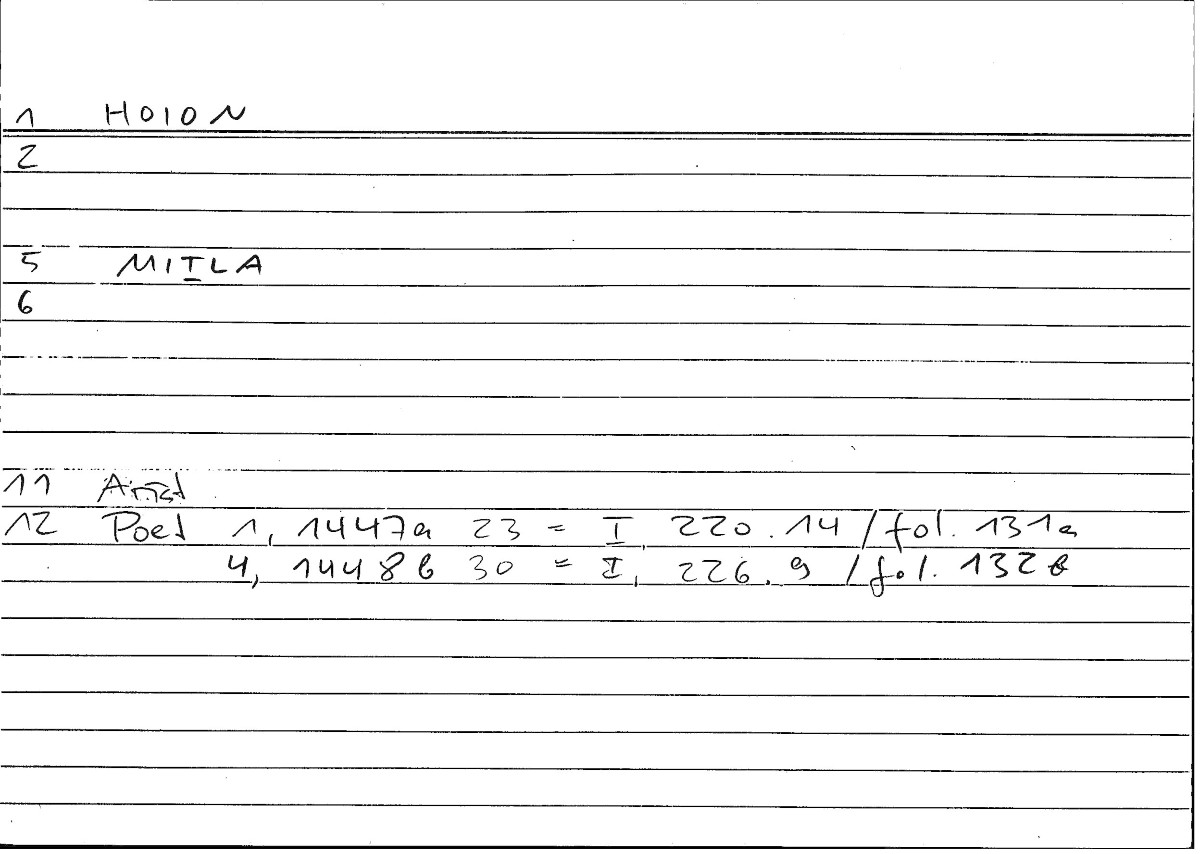 1 HOION
2
5 MITLA
6
11 Arist
12 Poet 1, 1447a 23 = I, 220.14 / fol. 131a
4, 1448b 30 = I, 226.9 / fol. 132b